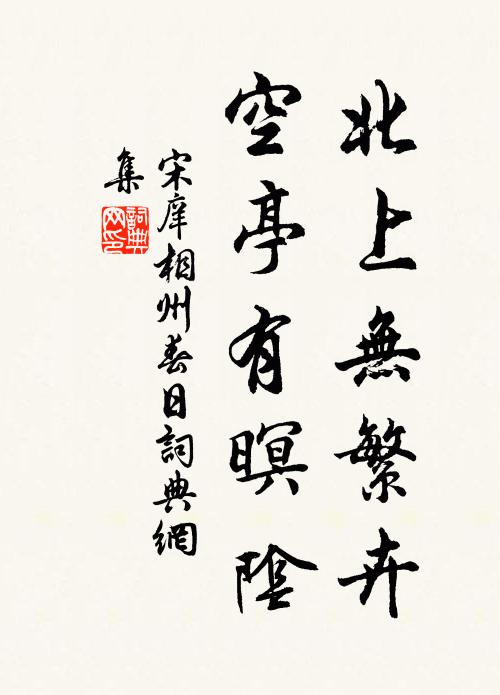 北上無繁卉
空亭有暝陰
宋庠相州春日詞典網
集
詞典網印